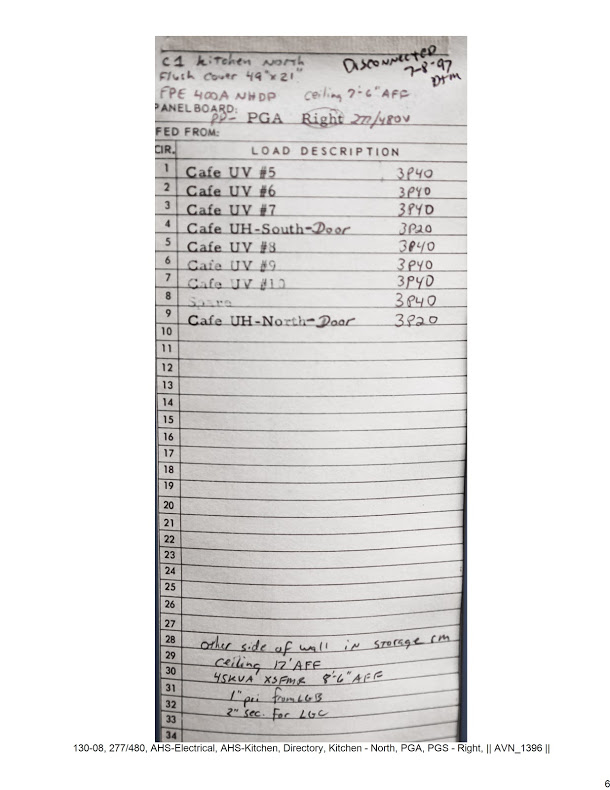 C1 Kitchen North
Disconnected
Flush Cover 49"x21"
7-8-97
DTM
FPE 400A NHDP ceiling 7'-6" AFF
PANELBOARD:
PP- PGA Right 277/480V
FED FROM:
CIR. LOAD DESCRIPTION
1 Cafe UV #5 3P40
2 Cafe UV #6 3P40
3 Cafe UV #7 3P40
4 Cafe UH-South-Door 3P20
5 Cafe UV #8 3P40
6 Cafe UV #9 3P40
7 Cafe UV #10 3P40
8 Spare 3P40
9 Cafe UH-North-Door 3P20
10
11
12
13
14
15
16
17
18
19
20
21
22
23
24
25
26
27
28 other side of wall in storage rm
29 ceiling 12' AFF
30 45KVA XSFMR 8'-6" AFF
31 1" pri from LGB
32 2" sec. For LGC
33
34
130-08, 277/480, AHS-Electrical, AHS-Kitchen, Directory, Kitchen - North, PGA, PGS - Right, || AVN_1396 ||
6